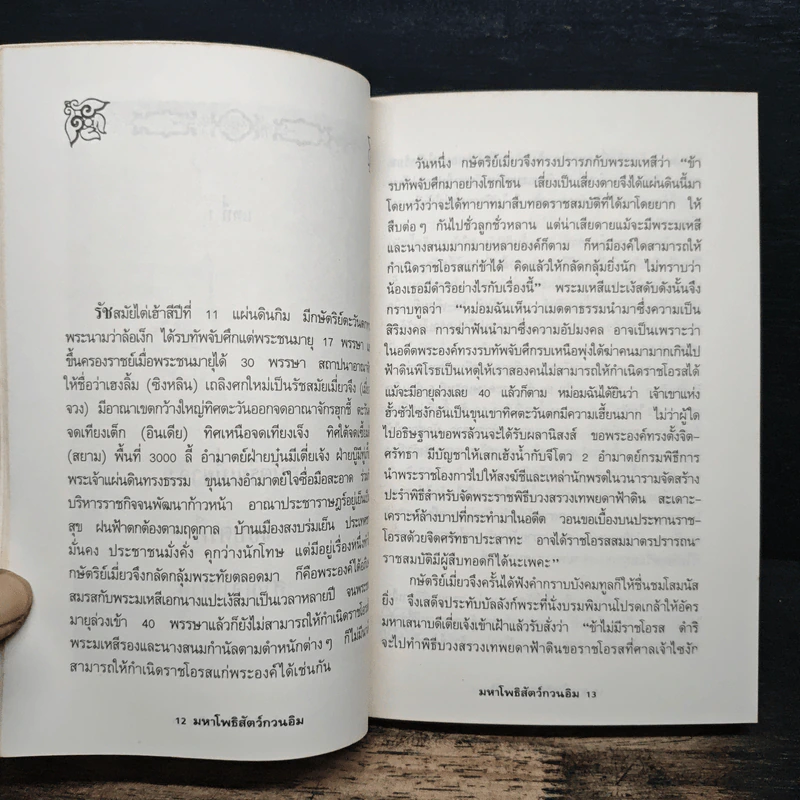 รัชสมัยไต่เฮ้าสีปีที่ 11 แผ่นดินกิม มีกษัตริย์ตะวันตก
พระนามว่าล้อเง็ก ได้รบทัพจับศึกแต่พระชนมายุ 17 พรรษา
ขึ้นครองราชย์เมื่อพระชนมายุได้ 30 พรรษา สถาปนาอาณา
ให้ชื่อว่าเฮงลิ้ม (ซิงหลิน) เถลิงศกใหม่เป็นรัชสมัยเมี่ยวจึง
จวง) มีอาณาเขตกว้างใหญ่ทิศตะวันออกจดอาณาจักรฮุกชี้
จดเทียงเต็ก (อินเดีย) ทิศเหนือจดเทียงเจ็ง ทิศใต้จด
(สยาม) พื้นที่ 3000 ลี้ อำมาตย์ฝ่ายบุ๋นมีเตี่ยเจ้ง ฝ่ายบู๊มี
พระเจ้าแผ่นดินทรงธรรม ขุนนางอำมาตย์ใจซื่อมือสะอาด
บริหารราชกิจจนพัฒนาก้าวหน้า อาณาประชาราษฎร์อยู่เย็น
สุข ฝนฟ้าตกต้องตามฤดูกาล บ้านเมืองสงบร่มเย็น
มั่นคง ประชาชนมั่งคั่ง คุกว่างนักโทษ แต่มีอยู่เรื่องหนึ่ง
กษัตริย์เมี่ยวจึงกลัดกลุ้มพระทัยตลอดมา ก็คือพระองค์ได้
สมรสกับพระมเหสีเอกนางแปะเง้สีมาเป็นเวลาหลายปี จน
มายุล่วงเข้า 40 พรรษาแล้วก็ยังไม่สามารถให้กำเนิดราชโอรส
พระมเหสีรองและนางสนมกำนัลตามตำหนักต่างๆ ก็ไม่มี
สามารถให้กำเนิดราชโอรสแก่พระองค์ได้เช่นกัน
12 มหาโพธิสัตว์กวนอิม
วันหนึ่ง กษัตริย์เมี่ยวจึงทรงปรารภกับพระมเหสีว่า “ข้า
รบทัพจับศึกมาอย่างโชกโชน เสี่ยงเป็นเสี่ยงตายจึงได้แผ่นดินนี้มา
โดยหวังว่าจะได้ทายาทมาสืบทอดราชสมบัติที่ได้มาโดยยาก ให้
สืบต่อๆ กันไปชั่วลูกชั่วหลาน แต่น่าเสียดายแม้จะมีพระมเหสี
และนางสนมมากมายหลายองค์ก็ตาม ก็หามีองค์ใดสามารถให้
กำเนิดราชโอรสแก่ข้าได้ คิดแล้วให้กลัดกลุ้มยิ่งนัก ไม่ทราบว่า
น้องเธอมีดำริอย่างไรกับเรื่องนี้” พระมเหสีแปะเง้สดับดังนั้นจึง
กราบทูลว่า “หม่อมฉันเห็นว่าเมตตาธรรมนำมาซึ่งความเป็น
สิริมงคล การฆ่าฟันนำมาซึ่งความอัปมงคล อาจเป็นเพราะว่า
ในอดีตพระองค์ทรงรบทัพจับศึกรบเหนือพุ่งใต้ฆ่าคนมามากเกินไป
ฟ้าดินพิโรธเป็นเหตุให้เราสองคนไม่สามารถให้กำเนิดราชโอรสได้
แม้จะมีอายุล่วงเลย 40 แล้วก็ตาม หม่อมฉันได้ยินว่า เจ้าเขาแห่ง
ฮั้วซัวไซงักอันเป็นขุนเขาทิศตะวันตกมีความเฮี้ยนมาก ไม่ว่าผู้ใด
ไปอธิษฐานขอพรล้วนจะได้รับผลานิสงส์ ขอพระองค์ทรงตั้งจิต-
ศรัทธา มีบัญชาให้เสกเฮ้งน้ำกับจีโตว 2 อำมาตย์กรมพิธีการ
นำพระราชโองการไปให้สงฆ์ชีและเหล่านักพรตในวนารามจัดสร้าง
ปะรำพิธีสำหรับจัดพระราชพิธีบวงสรวงเทพยดาฟ้าดิน สะเดาะ-
เคราะห์ล้างบาปที่กระทำมาในอดีต วอนขอเบื้องบนประทานราช-
โอรสด้วยจิตศรัทธาประสาทะ อาจได้ราชโอรสสมมาตรปรารถน-
ราชสมบัติมีผู้สืบทอดก็ได้นะเพคะ”
กษัตริย์เมี่ยวจึงครั้นได้ฟังคำกราบบังคมทูลก็ให้ชื่นชมโสมนัส
ยิ่ง จึงเสด็จประทับบัลลังก์พระที่นั่งบรมพิมานโปรดเกล้าให้อัคร
มหาเสนาบดีเตี่ยเจ้งเข้าเฝ้าแล้วรับสั่งว่า “ข้าไม่มีราชโอรส ดำริ
จะไปทำพิธีบวงสรวงเทพยดาฟ้าดินขอราชโอรสที่ศาลเจ้าไซงัก
มหาโพธิสัตว์กวนอิม 13